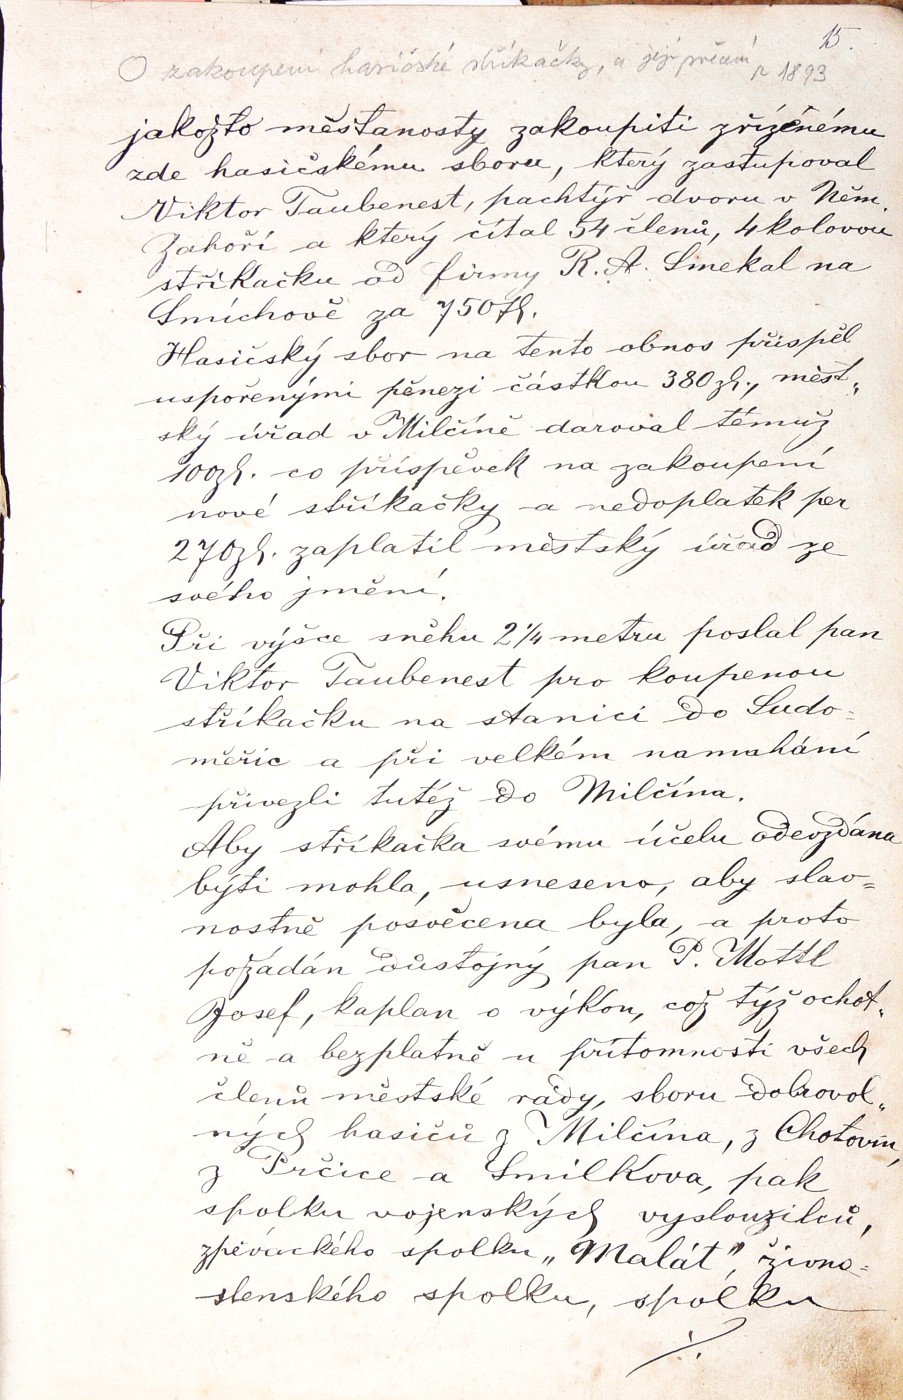 15.
O zakoupení hasičské stříkačky, a její svěcení
r 1893
jakožto měšťanosty zakoupiti zřízenému
zde hasičskému sboru, který zastupoval
Viktor Taubenest, pachtýř dvoru v Něm.
Zahoří a který čítal 54 členů, 4kolovou
stříkačku od firmy R. A. Smekal na
Smíchově za 750 zl.
Hasičský sbor na tento obnos přispěl
uspořenými pěnezi částkou 380 zl., měst„
ský úřad v Milčíně daroval témuž
100 zl. co příspěvek na zakoupení
nové stříkačky a nedoplatek per
270 zl. zaplatil městský úřad ze
svého jmění.
Při výšce sněhu 2 1/4 metru poslal pan
Viktor Taubenest pro koupenou
stříkačku na stanici do Sudo=
měřic a při velkém namahání
přivezli tutéž do Milčína.
Aby stříkačka svému účelu odevzdána
býti mohla, usneseno, aby slav=
nostně posvěcena byla, a proto
požádán důstojný pan P. Mottl
Josef, kaplan o výkon, což týž ochot„
ně a bezplatně u přítomnosti všech
členů městské rady, sboru dobrovol„
ných hasičů z Milčína, z Chotovin,
z Prčice a Smilkova, pak
spolku vojenských vysloužilců,
zpěváckého spolku „Malát", živno=
stenského spolku, spolku
./.